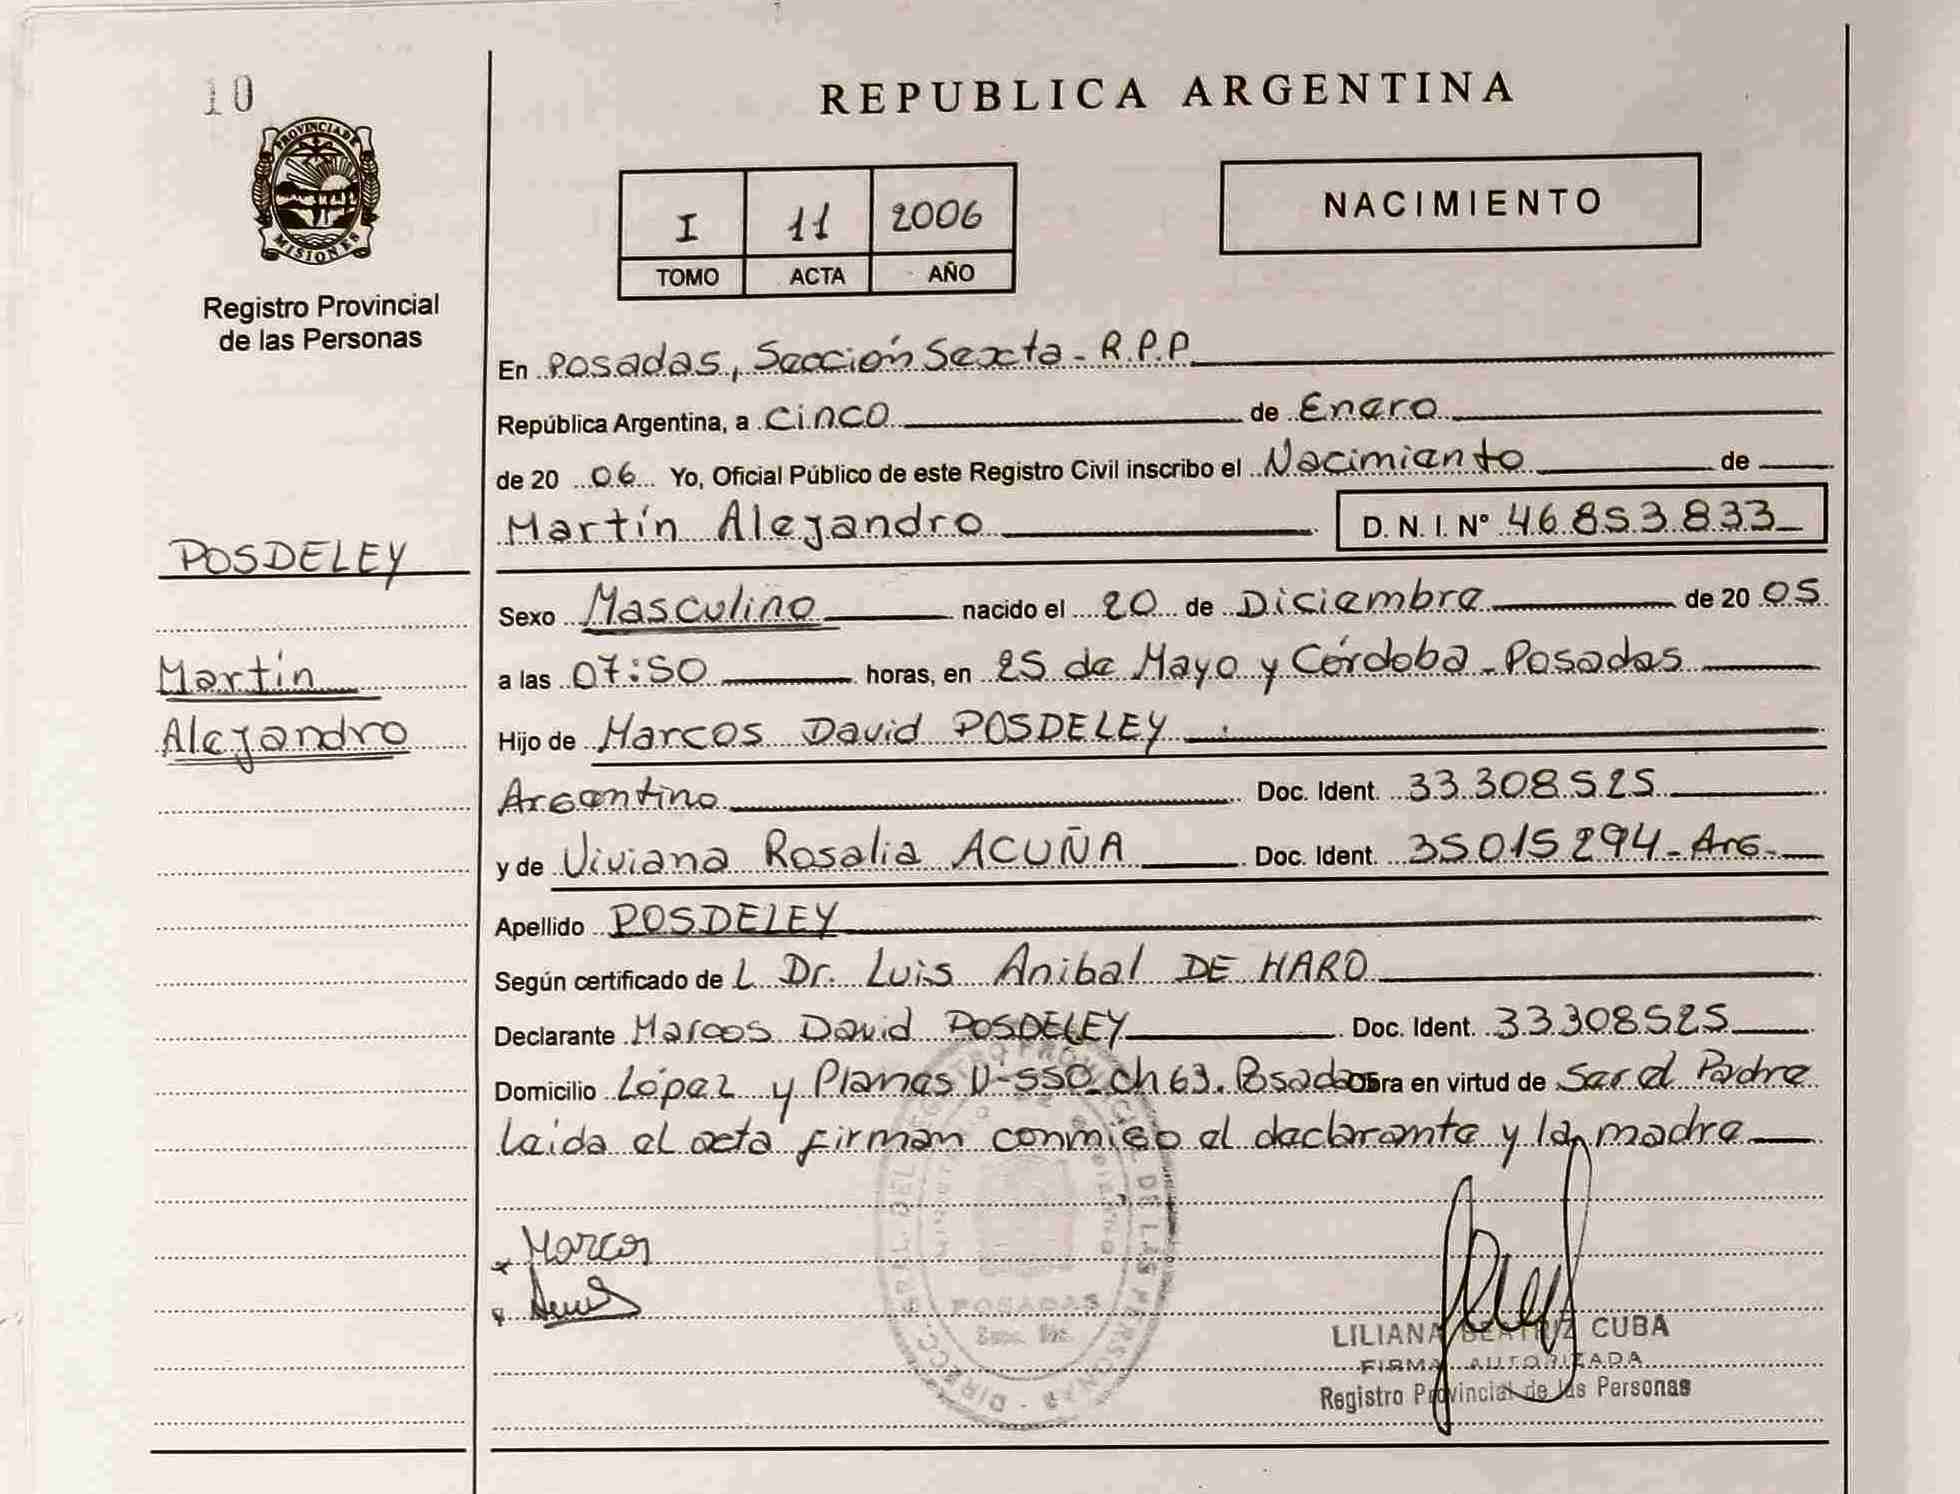 10
PROVINCIA DE
MISIONES
Registro Provincial
de las Personas
POSDELEY
Martín
Alejandro
REPUBLICA ARGENTINA
I 11 2006
TOMO ACTA AÑO
NACIMIENTO
En Posadas, Sección Sexta - R.P.P
República Argentina, a Cinco de Enero
de 20 06 Yo, Oficial Público de este Registro Civil inscribo el Nacimiento de
Martín Alejandro D. N. I. N° 46.853.833
Sexo Masculino nacido el 20 de Diciembre de 20 05
a las 07:50 horas, en 25 de Mayo y Córdoba - Posadas
Hijo de Marcos David POSDELEY
Argentino Doc. Ident. 33.308.525
y de Viviana Rosalia ACUÑA Doc. Ident. 35015294 - Arg.
Apellido POSDELEY
Según certificado de L Dr. Luis Anibal DE HARO
Declarante Marcos David POSDELEY Doc. Ident. 33308525
Domicilio López y Planes V-550 ch 63. Posadas Obra en virtud de Ser el Padre
Leída el acta firman conmigo el declarante y la madre
Marcos
POSADAS
LILIANA BEATRIZ CUBA
FIRMA AUTORIZADA
Registro Provincial de las Personas